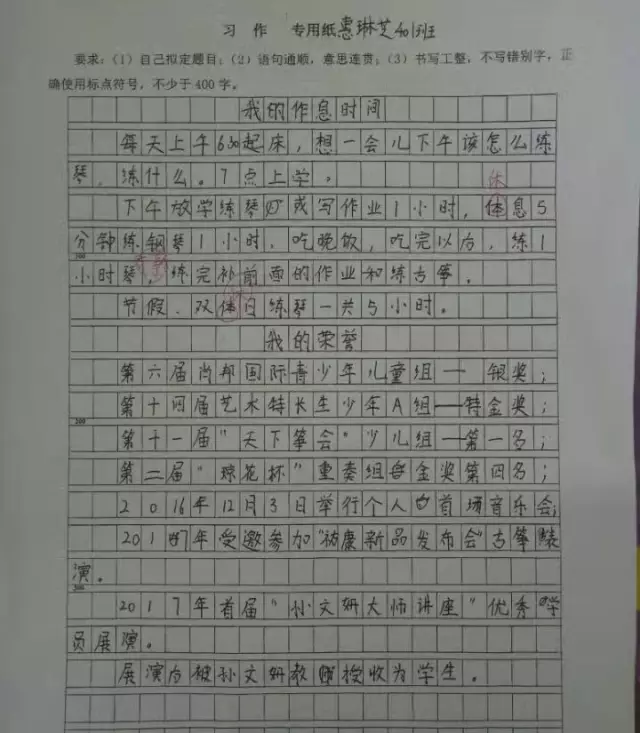 习 作 专用纸惠琳芝401班
要求:(1)自己拟定题目;(2)语句通顺,意思连贯;(3)书写工整,不写错别字,正
确使用标点符号,不少于400字。
我的作息时间
每天上午630起床,想一会儿下午该怎么练
琴,练什么。7点上学。
休
下午放学练琴或写作业1小时,体息5
分钟练钢琴1小时,吃晚饭,吃完以后,练1
小时琴,练完补前面的作业和练古筝。
节假、双休日练琴一共5小时。
我的荣誉
第六届肖邦国际青少年儿童组——银奖;
第十四届艺术特长生少年A组——特金奖;
第十一届"天下筝会"少儿组——第一名;
第二届"琼花杯"重奏组金奖第四名;
2016年12月3日举行个人首场音乐会;
2017年受邀参加"祐康新品发布会"古筝表
演。
2017年首届"孙文妍大师讲座"优秀学
员展演。
展演后被孙文妍教授收为学生。
100
200
300